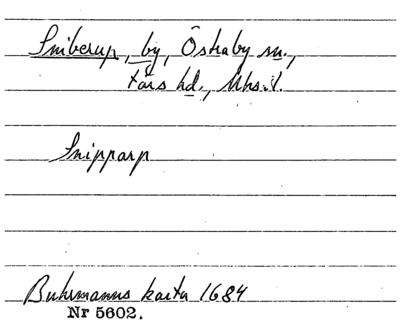 Sniberup, by, Östraby sn.,
Färs hd., Mhs. l.
Snipparp
Buhrmanns karta 1684
Nr 5602.